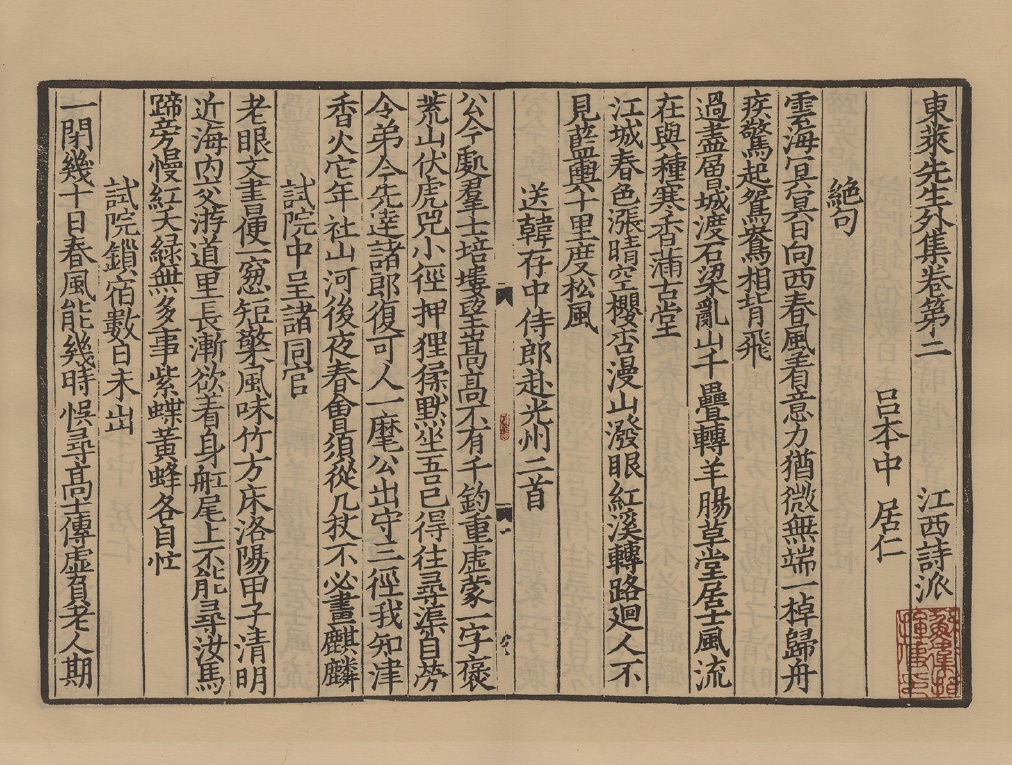 東萊先生外集卷第二 江西詩派
呂本中 居仁
絶句
雲海冥冥日向西春風着意力猶微無端一棹歸舟
疾驚起鴛鴦相背飛
過盡畱城渡石梁亂山千疊轉羊腸草堂居士風流
在與種寒香滿古堂
江城春色漲晴空櫻杏漫山潑眼紅溪轉路迴人不
見藍輿十里度松風
送韓存中侍郎赴光州二首
公今處羣士培塿望嵩高不有千鈞重虛蒙一字褒
荒山伏虎兕小徑押狸猱默坐吾已得往尋渠自勞
令弟今先逹諸郎復可人一麾公出守三徑我知津
香火它年社山河後夜春會須從几杖不必畫麒麟
試院中呈諸同官
老眼文書量便一窓短檠風味竹方床洛陽甲子清明
近海内交游道里長漸欲着身舡尾上不能尋汝馬
蹄旁慢紅天緑無多事紫蝶黄蜂各自忙
試院鎖宿數日未出
一閉幾十日春風能幾時悞尋高士傳虛負老人期